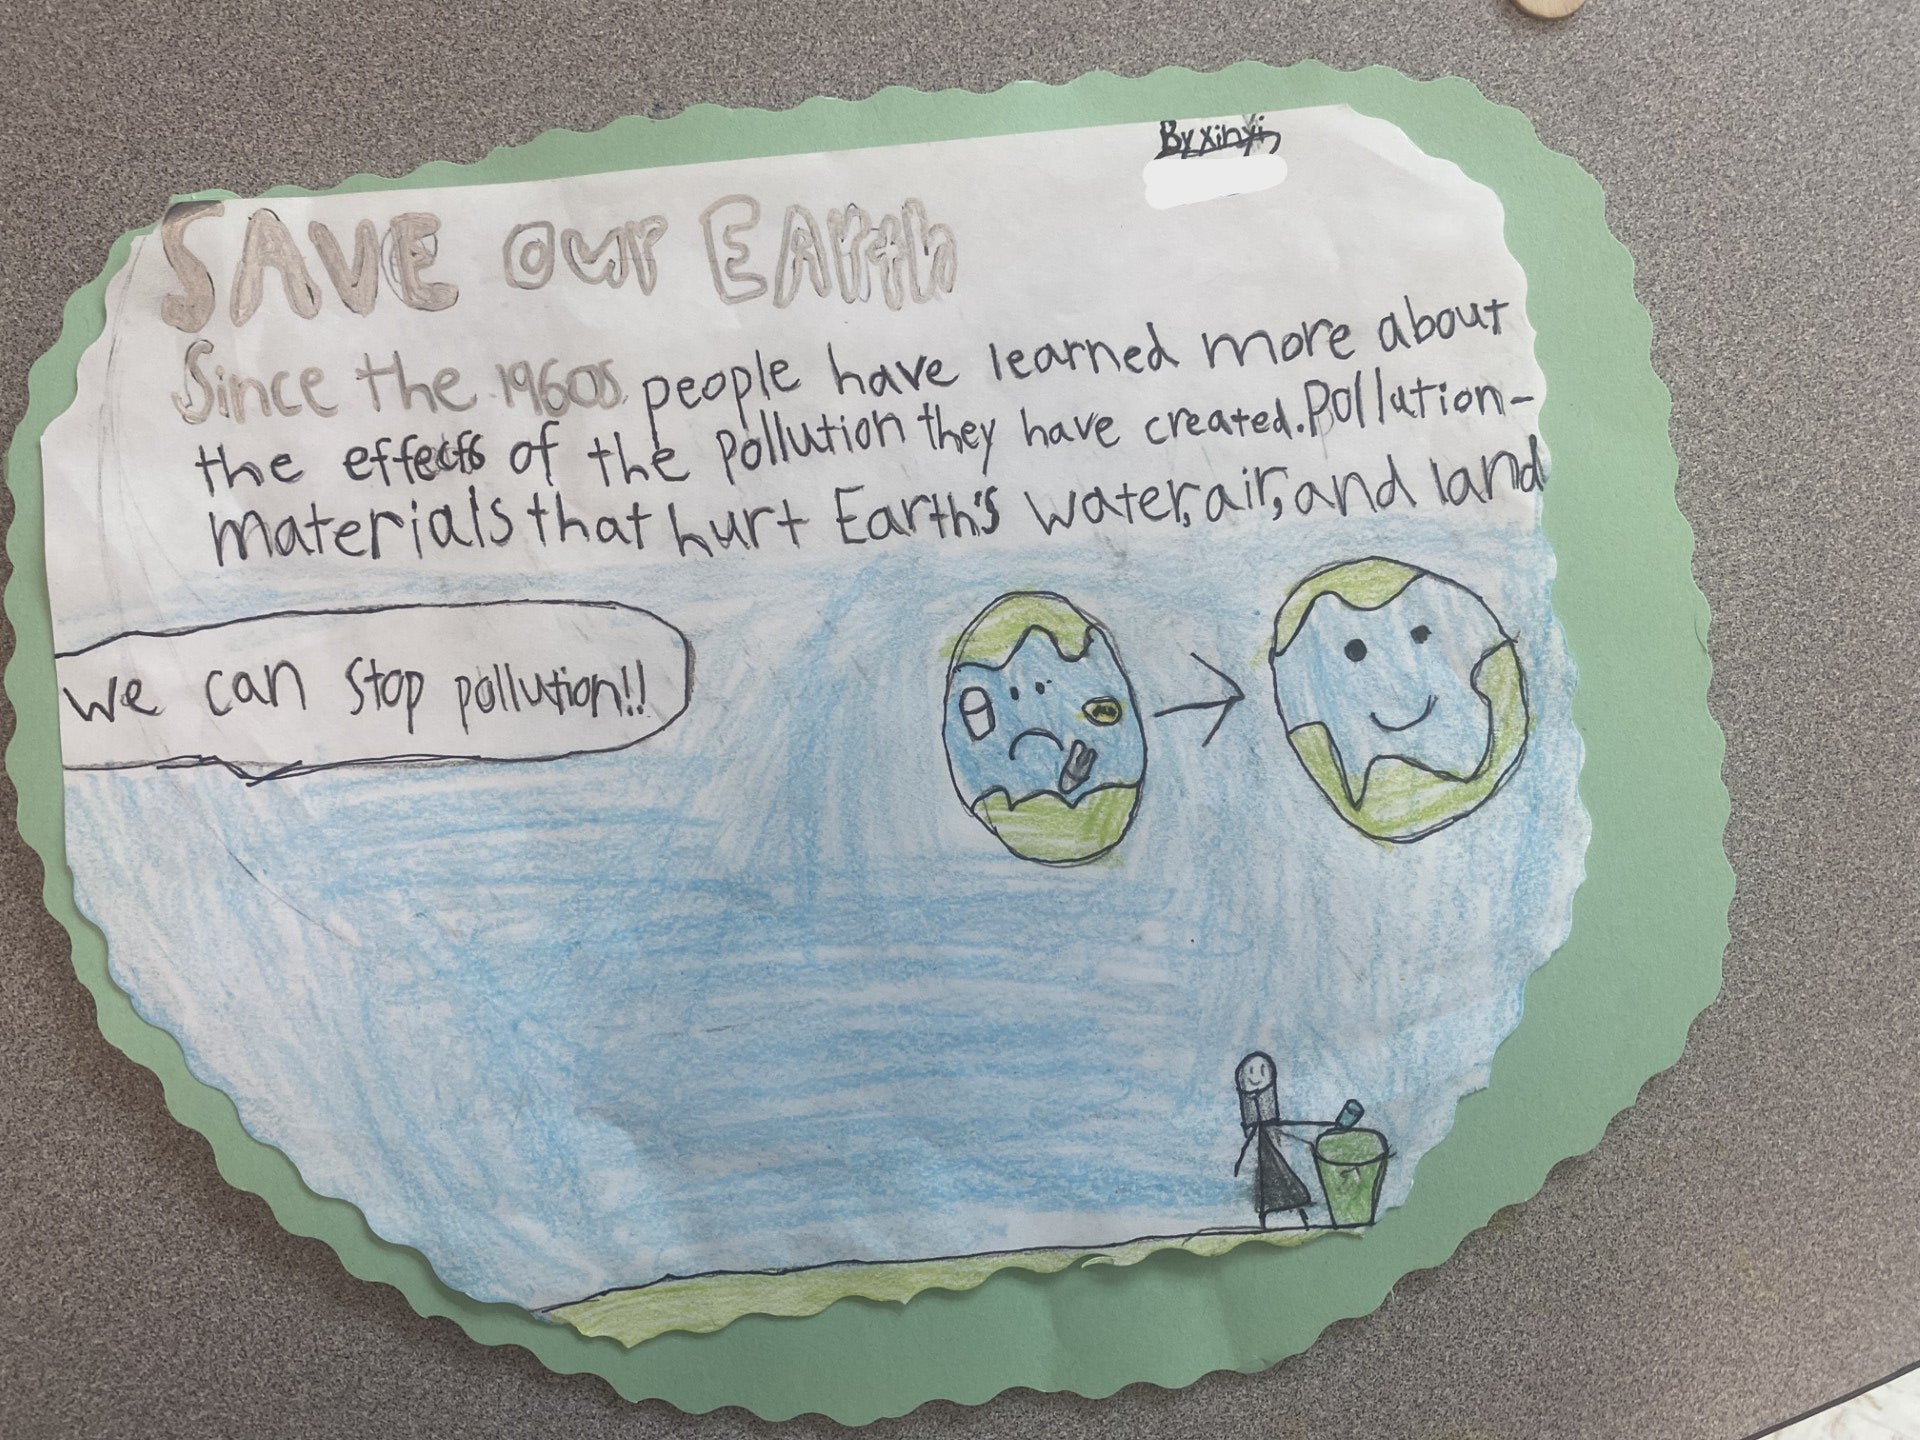 By Xinyi
SAVE our EArth
Since the 1960s people have learned more about
the effects of the pollution they have created. Pollution-
materials that hurt Earth's water, air, and land
We can stop pollution!!